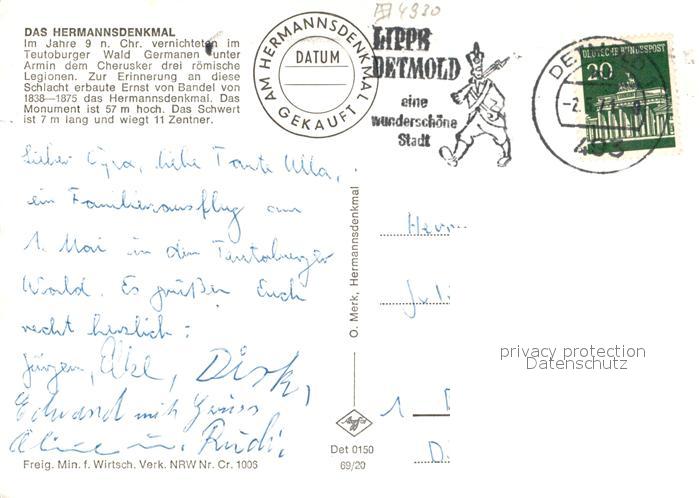 4930
DAS HERMANNSDENKMAL
Im Jahre 9 n. Chr. vernichteten im
Teutoburger Wald Germanen unter
Armin dem Cherusker drei römische
Legionen. Zur Erinnerung an diese
Schlacht erbaute Ernst von Bandel von
1838—1875 das Hermannsdenkmal. Das
Monument ist 57 m hoch. Das Schwert
ist 7 m lang und wiegt 11 Zentner.
AM HERMANNSDENKMAL
DATUM
GEKAUFT
LIPPE
DETMOLD
eine
wunderschöne
Stadt
DEUTSCHE BUNDESPOST
20
DETMOLD
-2.
493
Lieber Opa, liebe Tante Ulla,
ein Familienausflug am
1. Mai in den Teutoburger
Wald. Es grüßen Euch
recht herzlich:
Jürgen, Elke, Dirk,
Eduard mit Gruss
u. Rudi.
O. Merk, Hermannsdenkmal
Herrn
Juli
1
D
D
privacy protection
Datenschutz
Agfa
Det 0150
69/20
Freig. Min. f. Wirtsch. Verk. NRW Nr. Cr. 1006